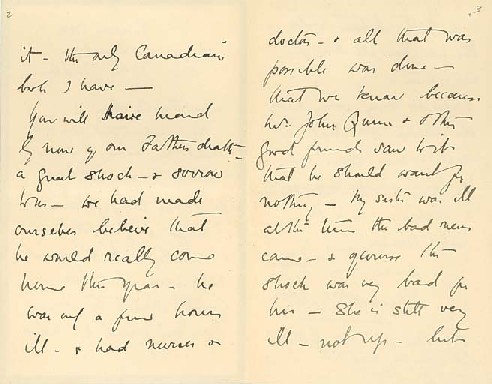 2
it - the only Canadian
book I have -
You will have heard
by now of our Father's death -
a great shock - & sorrow
to us - we had made
ourselves believe that
he would really come
home this year - he
was only a few hours
ill - & had nurses &
3
doctors - & all that was
possible was done -
that we know because
Mr. John Quinn & other
good friends saw to it
that he should want for
nothing - My sister was ill
at the time the bad news
came - & of course the
shock was very bad for
her - She is still very
ill - not up - but